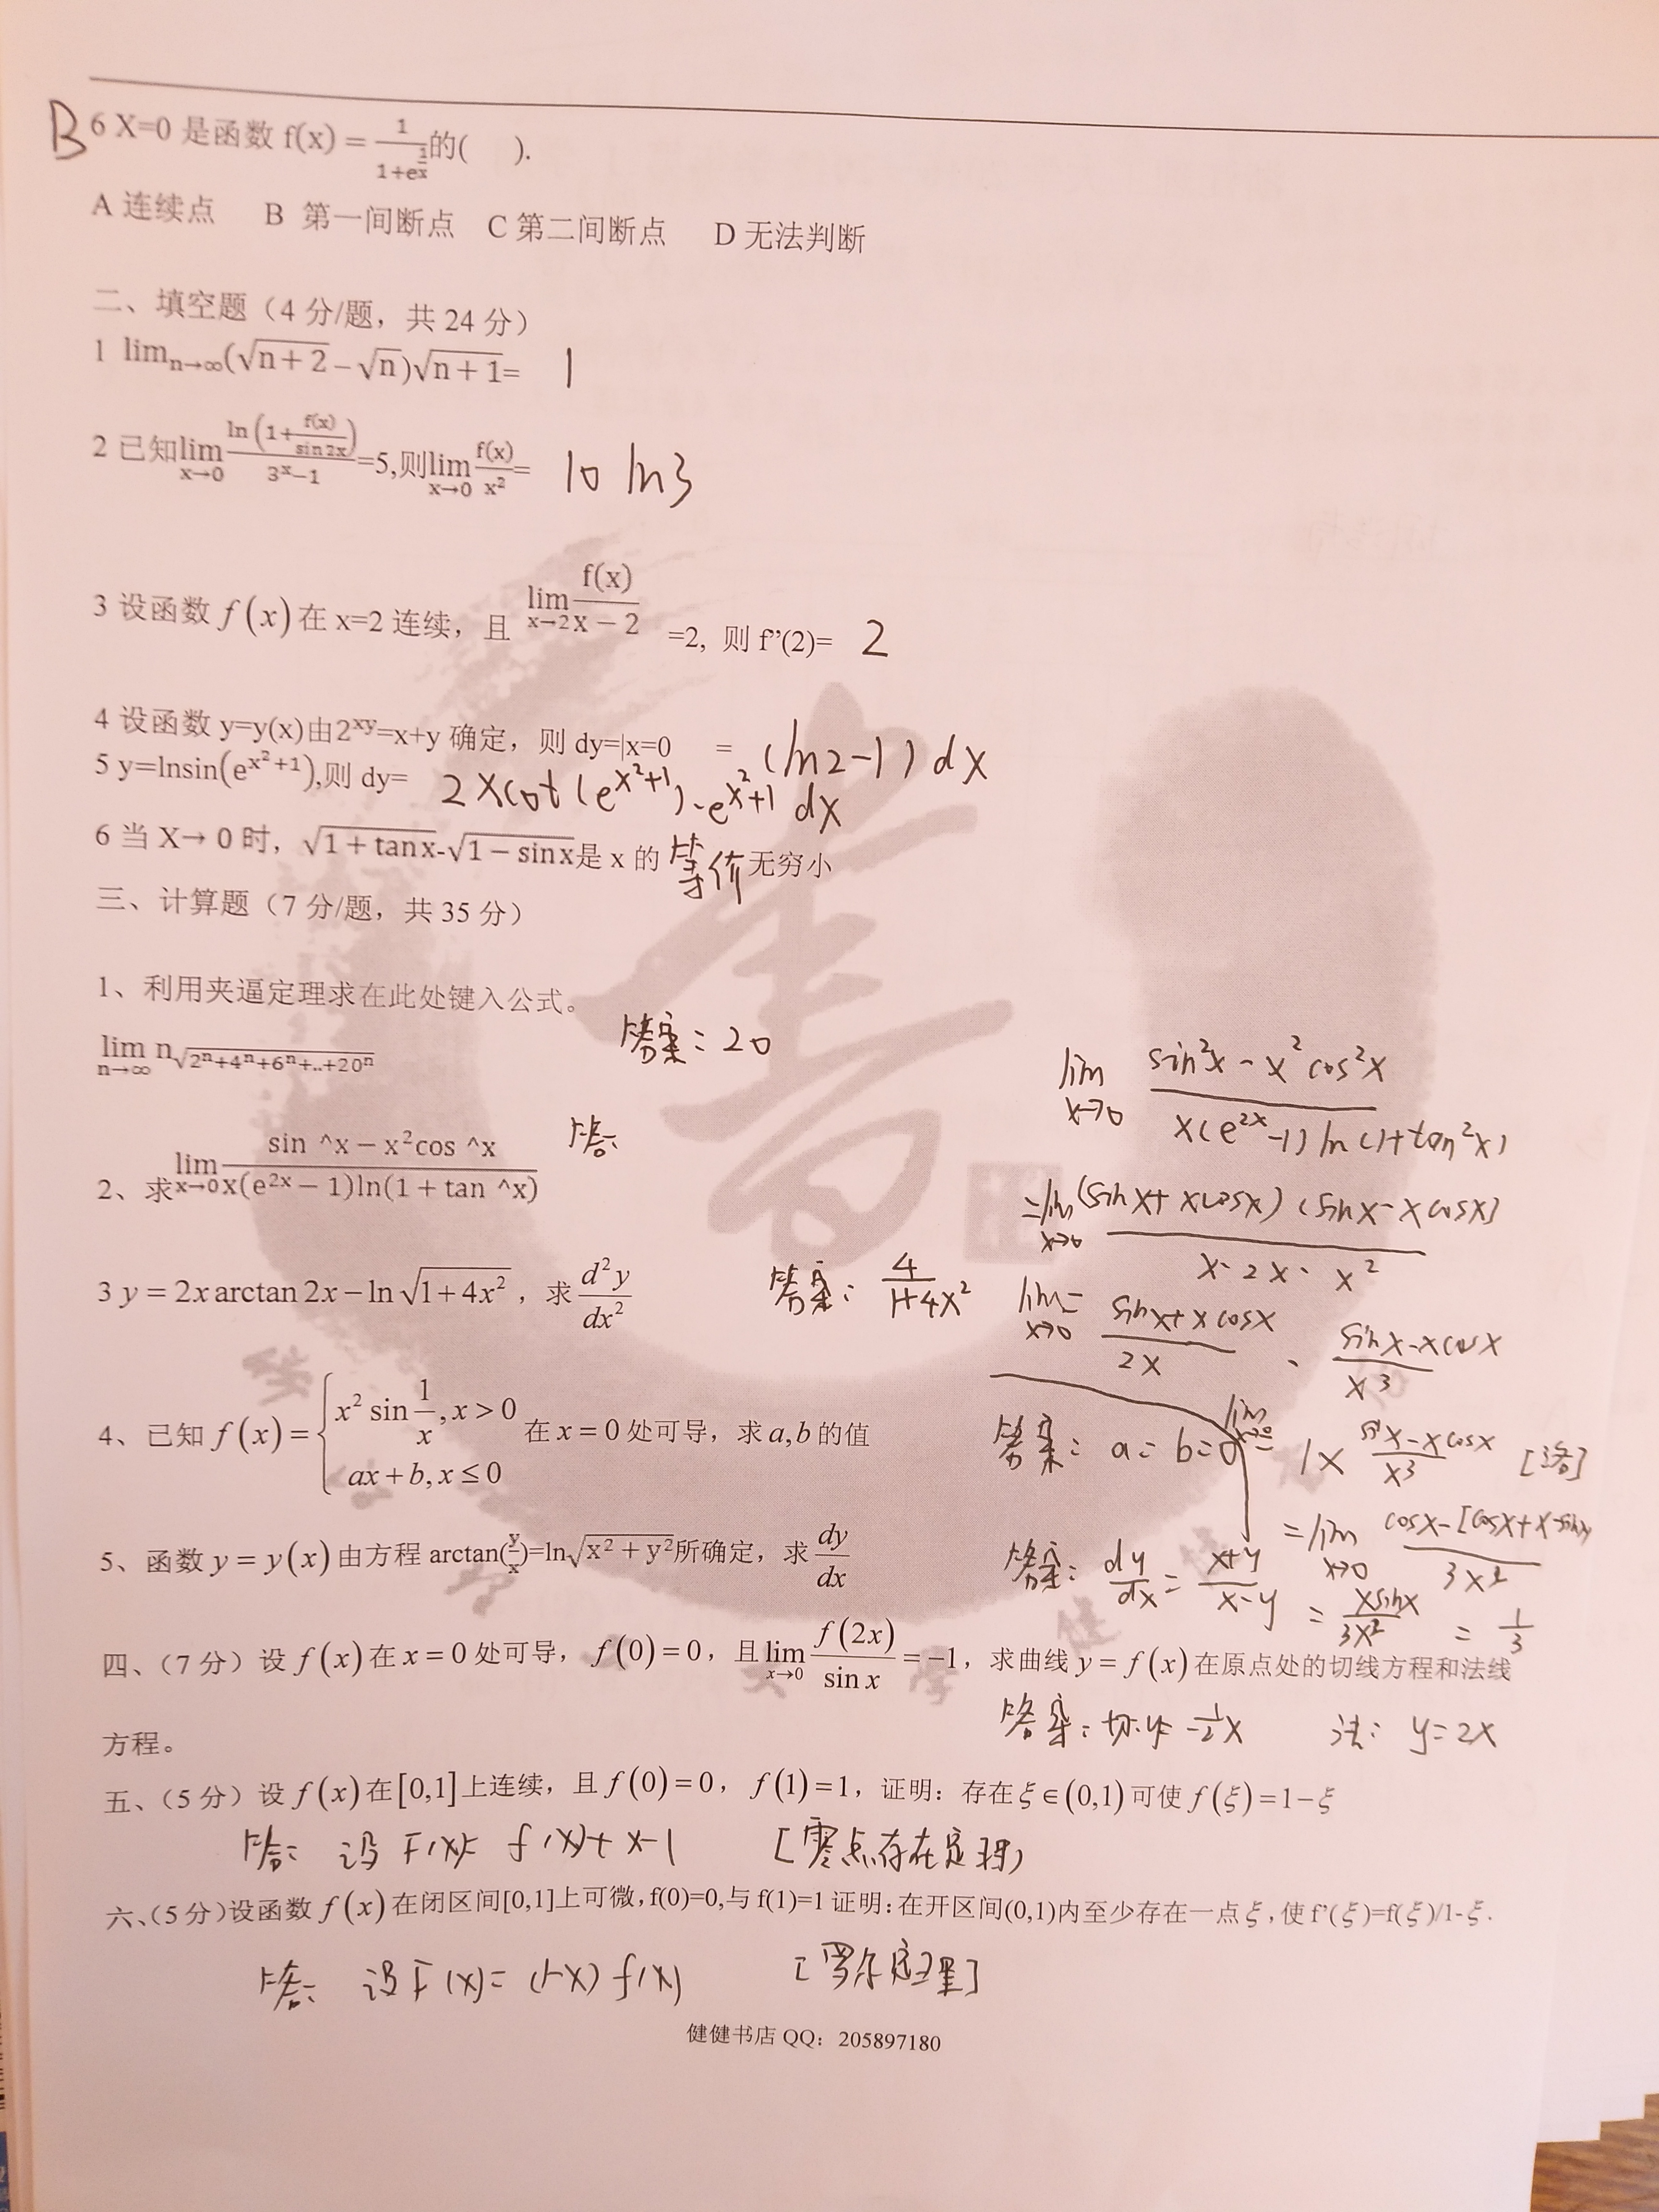 B 6 X=0 是函数 f(x) = 1/(1+e^(1/x)) 的(   ).
A 连续点 B 第一间断点 C 第二间断点 D 无法判断
二、填空题（4 分/题，共 24 分）
1 lim n→∞ (√(n+2) − √n)√(n+1)= 1
2 已知 lim x→0 ln(1+f(x)/sin2x)/(3^x−1) =5,则 lim x→0 f(x)/x² = 10 ln3
3 设函数 f(x) 在 x=2 连续，且 lim x→2 f(x)/(x−2) =2, 则 f’(2)= 2
4 设函数 y=y(x)由2^(xy)=x+y 确定，则 dy=|x=0 = (ln2-1) dx
5 y=lnsin(e^(x²+1)),则 dy= 2xcot(e^(x²+1))·e^(x²+1) dx
6 当 X→ 0 时，√(1+tanx)-√(1−sinx)是 x 的 等价 无穷小
三、计算题（7 分/题，共 35 分）
1、利用夹逼定理求在此处键入公式。
lim n→∞ n√(2^n+4^n+6^n+..+20^n) 答案: 20
2、求 lim x→0 (sin ^x − x²cos ^x)/(x(e^(2x) − 1)ln(1 + tan ^x)) 答:
lim x→0 (sin²x − x²cos²x)/(x(e^(2x)-1)ln(1+tan²x))
=lim x→0 (sinx+xcosx)(sinx-xcosx)/(x·2x·x²)
lim x→0 = (sinx+xcosx)/2x · (sinx-xcosx)/x³
lim x→0 = 1× (sinx-xcosx)/x³ [洛]
=lim x→0 (cosx-[cosx+x·-sinx)/3x²
= xsinx/3x² = 1/3
3 y = 2x arctan 2x − ln √(1+4x²)，求 d²y/dx² 答案: 4/(1+4x²)
4、已知 f(x) = { x² sin 1/x, x > 0
ax + b, x ≤ 0 在 x = 0 处可导，求 a,b 的值 答案: a=b=0
5、函数 y = y(x) 由方程 arctan(y/x)=ln√(x² + y²)所确定，求 dy/dx 答案: dy/dx = (x+y)/(x-y)
四、（7 分）设 f(x) 在 x = 0 处可导，f(0) = 0，且 lim x→0 f(2x)/sin x = −1，求曲线 y = f(x) 在原点处的切线方程和法线
方程。 答案: 切: y= -1/2x 法: y=2x
五、（5 分）设 f(x) 在 [0,1] 上连续，且 f(0) = 0，f(1) = 1，证明：存在 ξ ∈ (0,1) 可使 f(ξ) = 1 − ξ
答: 设 F(x)= f(x)+x-1 [零点存在定理)
六、（5 分）设函数 f(x) 在闭区间[0,1]上可微,f(0)=0,与 f(1)=1 证明：在开区间(0,1)内至少存在一点 ξ,使 f’(ξ)=f(ξ)/1-ξ.
答: 设 F(x)= (1-x) f(x) [罗尔定理]
健健书店 QQ：205897180
書